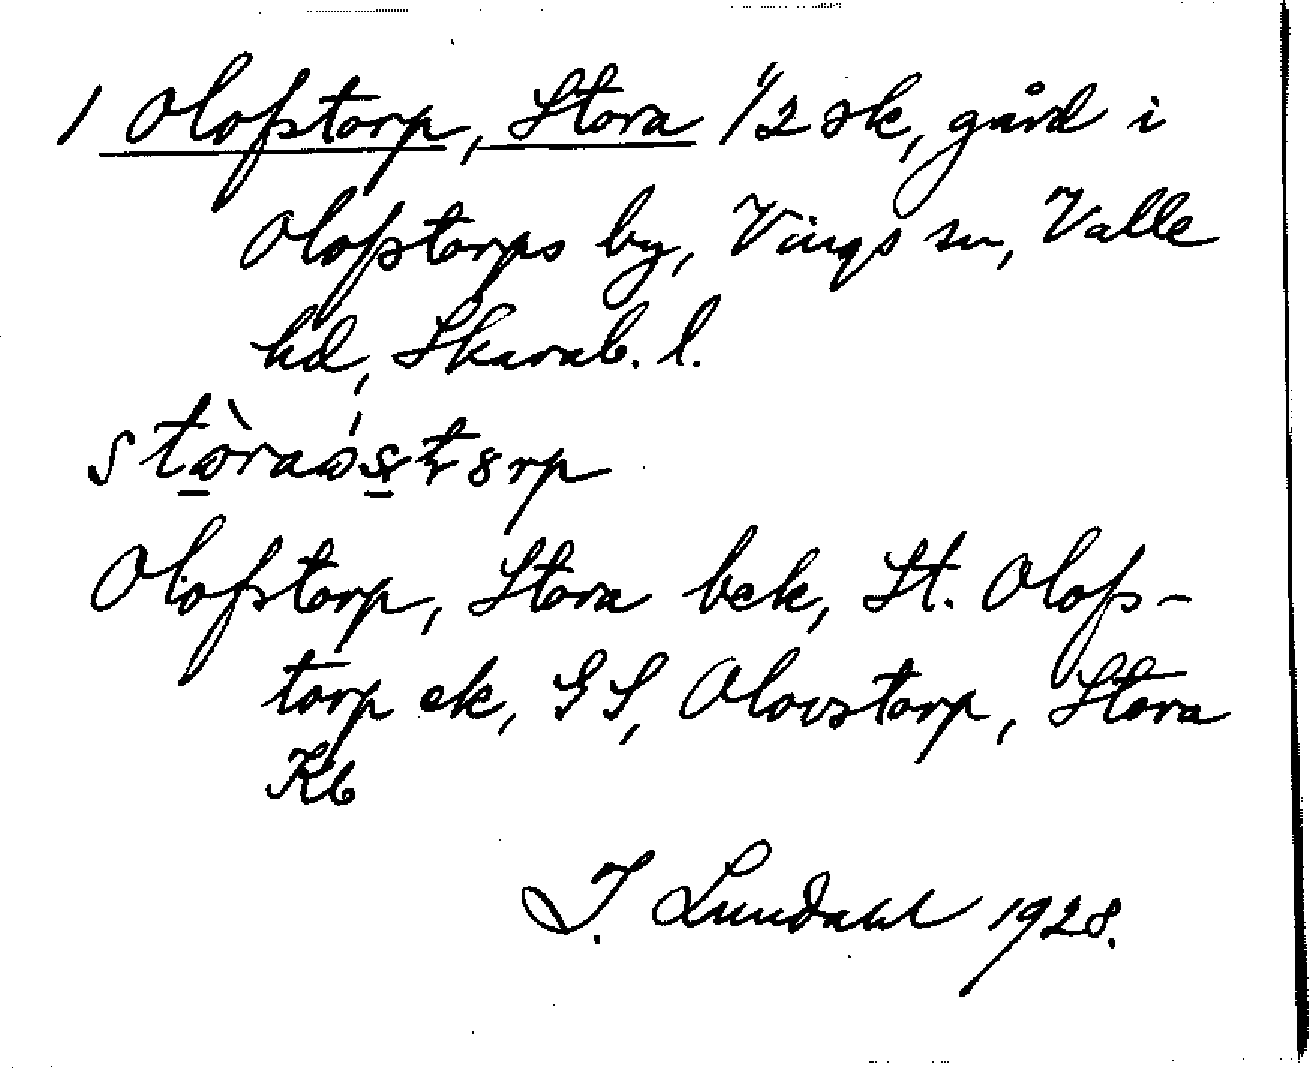 1 Olofstorp, Stora 1/2 sk, gård i
Olofstorps by, Vings sn, Valle
hd, Skarab. l.
Olofstorp, Stora bek, St. Olofs-
torp ek, GS, Olovstorp, Stora
Kb
I. Lundahl 1928.